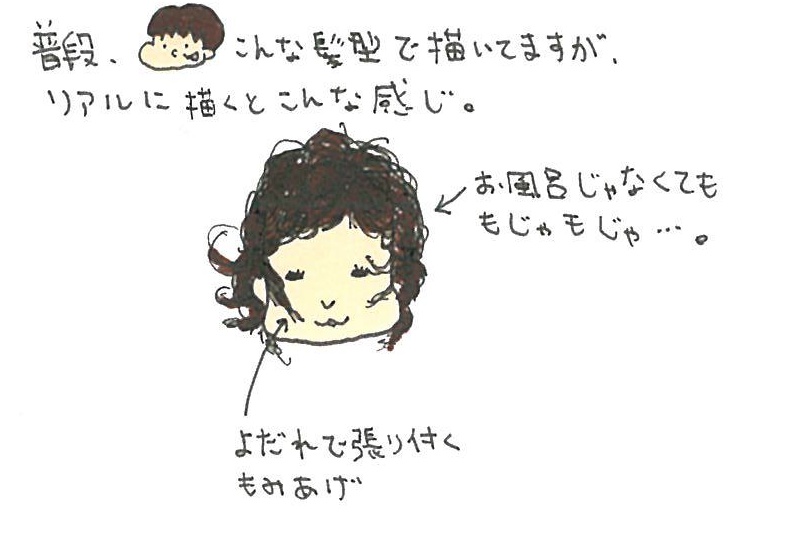 普段、こんな髪型で描いてますが、
リアルに描くとこんな感じ。
お風呂じゃなくても
もじゃもじゃ…。
よだれで張り付く
もみあげ